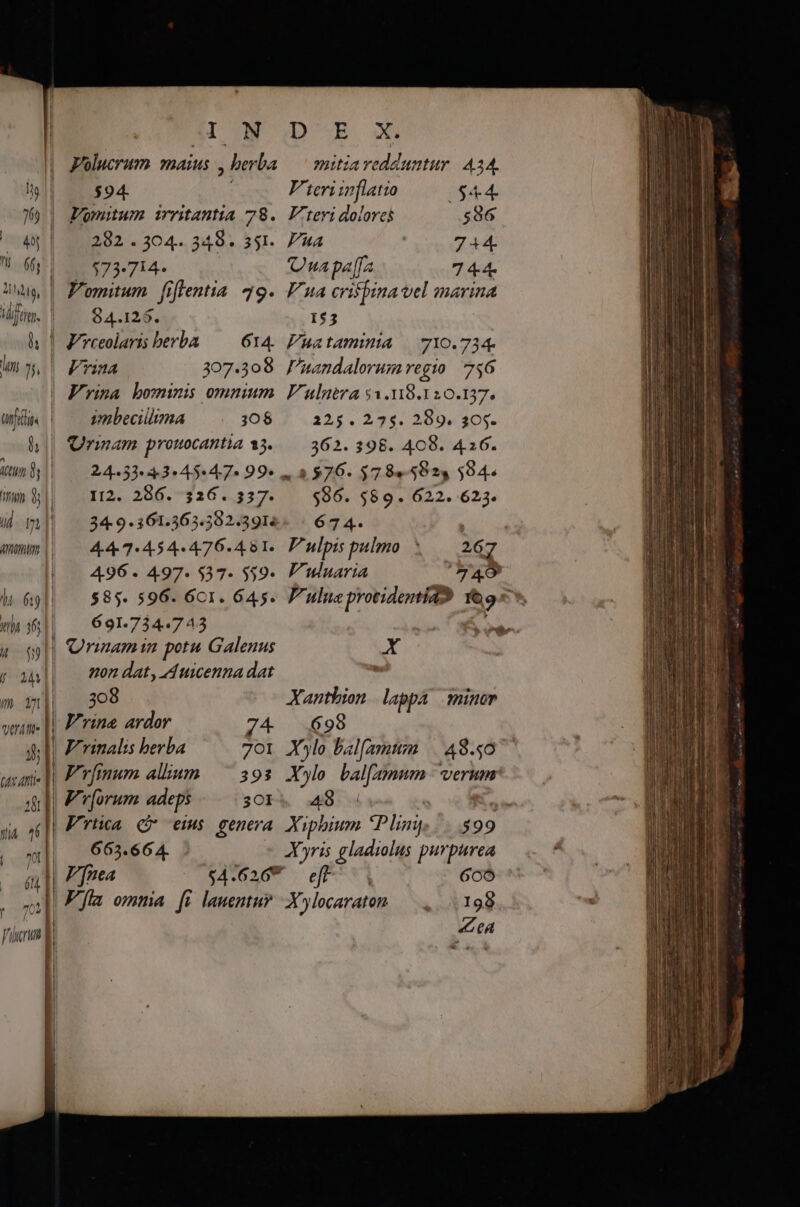 I N D E X.
Volucrum maius, herba
594
Vomitum irritantia 78.
282. 304. 348. 351.
573.714.
Vomitum sistentia 79.
84.126.
Vrceolaris herba 614
Vrina 307.308
Vrina hominis omnium
imbecillima 308
Vrinam prouocantia 13.
24.33.43.45.47.99.
112. 286. 326. 337.
349.361.363.382.391.
447.454.476.481.
496. 497. 537. 559.
585. 596. 601. 645.
691.734.743
Vrinam in potu Galenus
non dat, Auicenna dat
308
Vrinæ ardor 74
Vrinalis herba 701
Vrsinum allium 393
Vrsorum adeps 301
Vrtica & eius genera
663.664
Vsnea 54.626
Vsta omnia si lauentur
mitia redduntur 434
Vteri inflatio 544
Vteri dolores 586
Vua 744
Vua passa 744
Vua crispina vel marina
153
Vua taminia 710.734
Vuandalorum regio 756
Vulnera 51.118.120.137.
225. 275. 289. 305.
362. 398. 408. 426.
576. 578. 582. 584.
586. 589. 622. 623.
674.
Vulpis pulmo 267
Vuluaria 749
Vuluæ procidentia 169
X
Xanthion lappa minor
698
Xylo balsamum 48.50
Xylo balsamum verum
48
Xiphium Plinij. 599
Xyris gladiolus purpurea
est 606
Xylocaraton 198
Zea